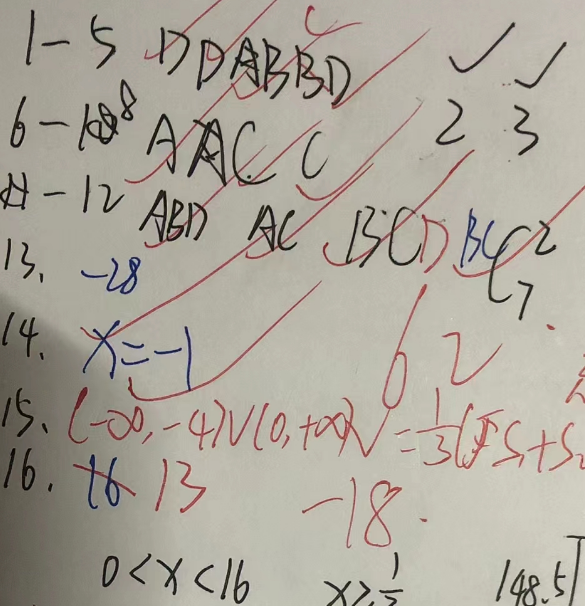 1-5 DDABBD C
6-8 AAC C 2 3
-12 ABD AC BCD BC
13. -28
14. x=-1 62
15. (-∞,-4)∪(0,+∞) V=1/3(
16. 16 13 -18.
0<x<16 148.5